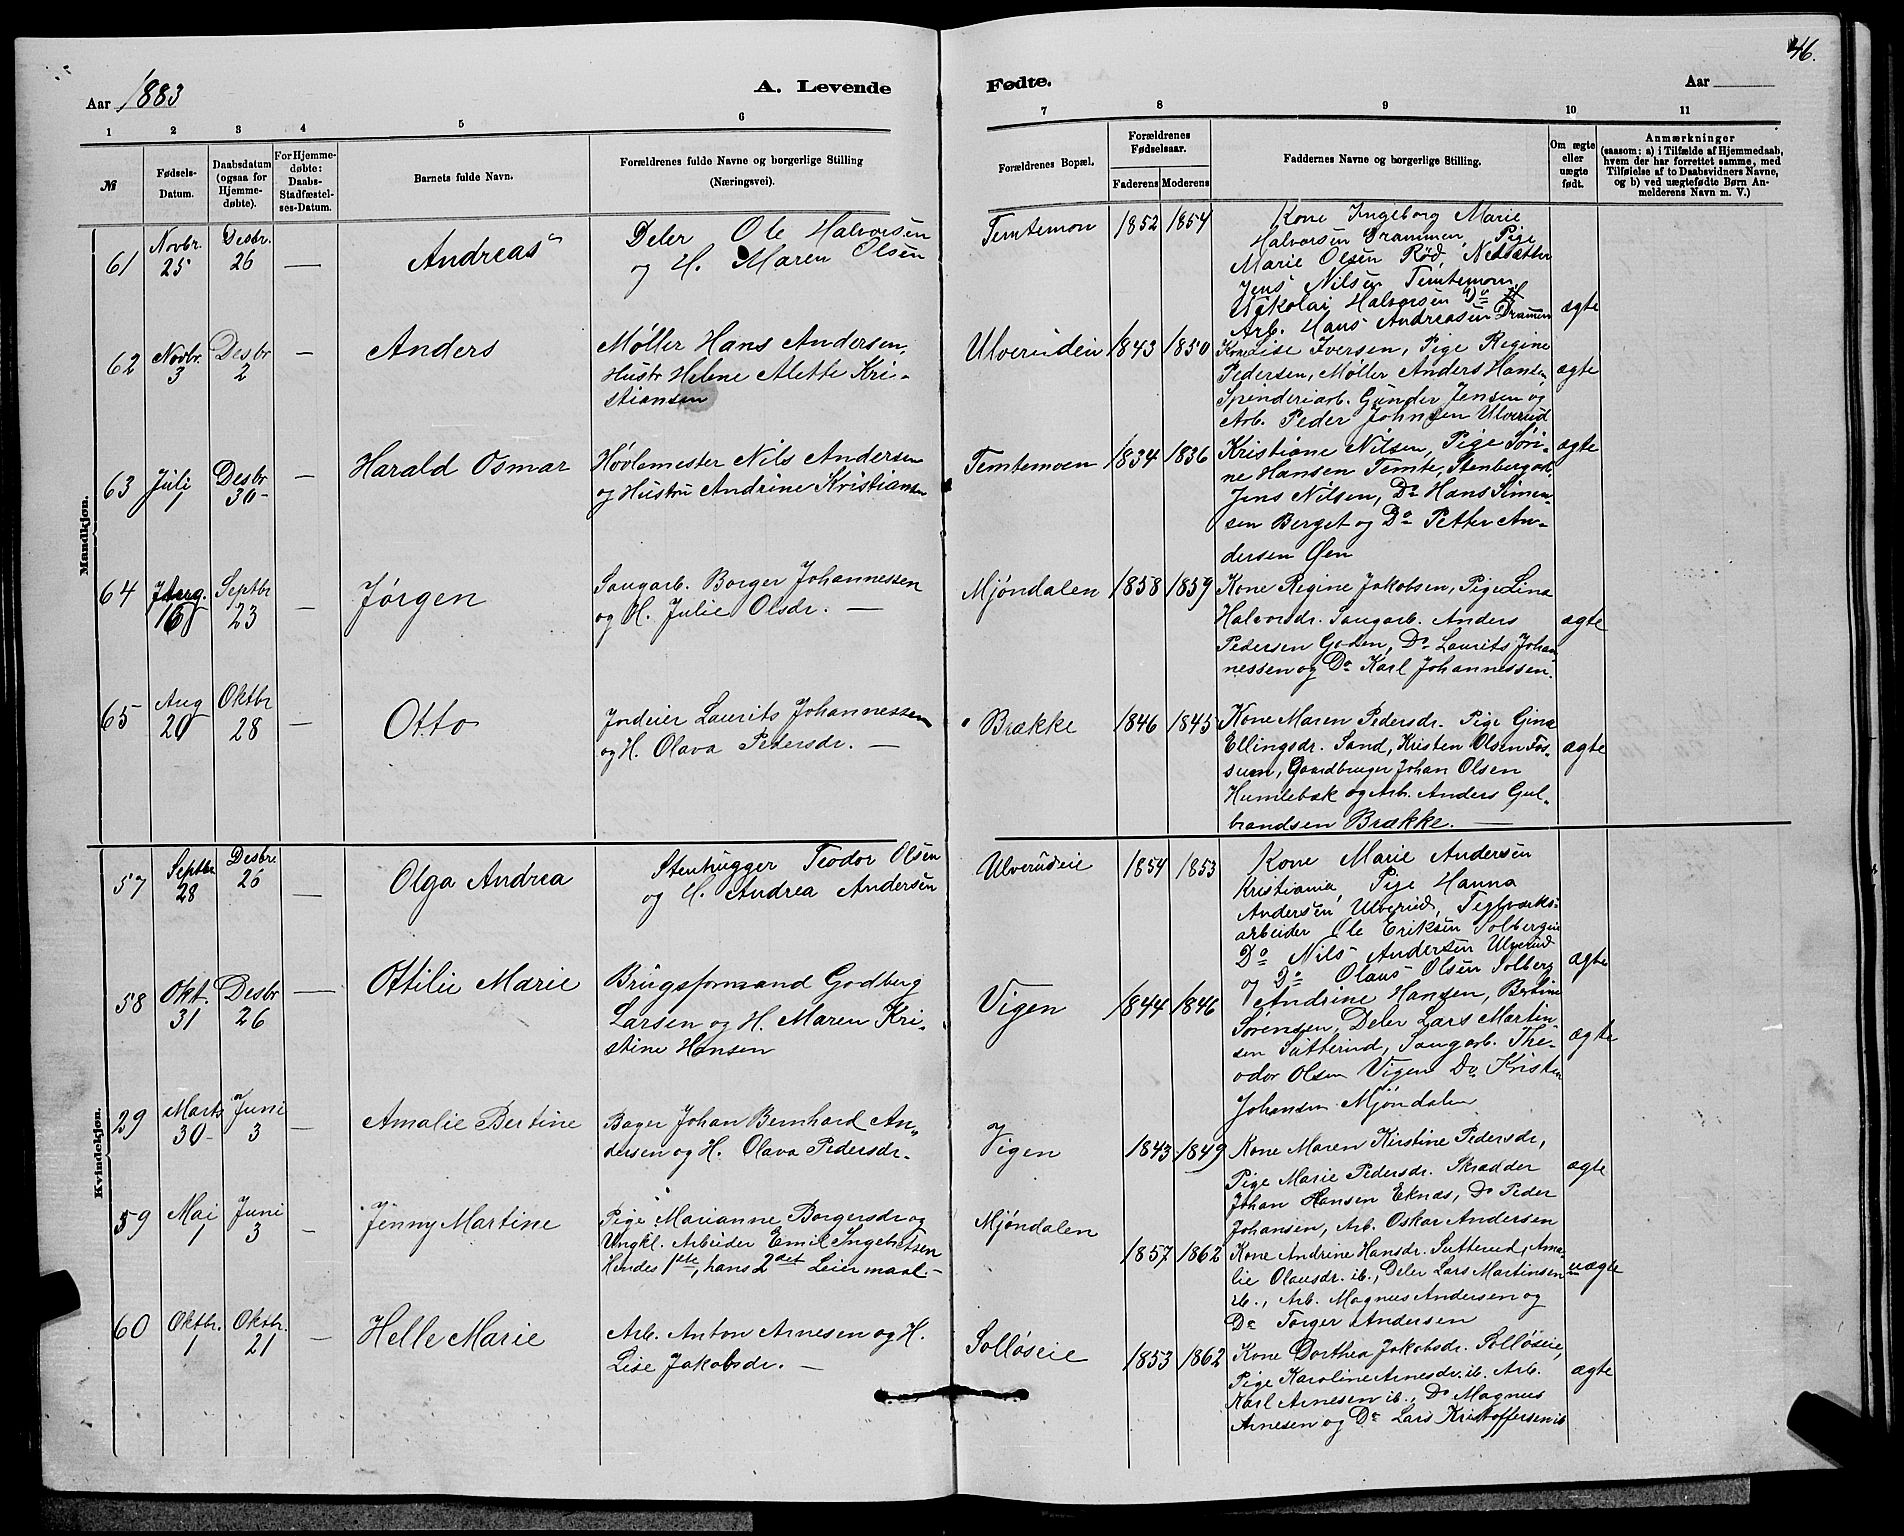 46.
Aar 1883
A. Levende
Fødte.
Aar
1 2 3 4 5 6 7 8 9 10 11
№
Fødsels-
Datum.
Daabsdatum
(ogsaa for
Hjemme-
døbte).
For Hjemme-
døbte:
Daabs-
Stadfæstel-
ses-Datum.
Barnets fulde Navn.
Forældrenes fulde Navne og borgerlige Stilling
(Næringsvei).
Forældrenes Bopæl.
Forældrenes
Fødselsaar.
Faderens Moderens
Faddernes Navne og borgerlige Stilling.
Om ægte
eller
uægte
født.
Anmærkninger
(saasom: a) i Tilfælde af Hjemmedaab,
hvem der har forrettet samme, med
Tilføielse af to Daabsvidners Navne,
og b) ved uægtefødte Børn An-
melderens Navn m. V.)
Mandkjøn.
61
Novbr.
25
Desbr.
26
—
Andreas
Deler Ole Halvorsen
og H. Maren Olsen
Temtemon
1852 1854
Kone Ingeborg Marie
Halvorsen Drammen, Pige
Marie Olsen Rød, Nedsætter
Jens Nilsen Temtemoen
Nikolai Halvorsen Do
Arb. Hans Andreasen Drammen
ægte
62
Novbr.
3
Desbr
2
—
Anders
Møller Hans Andersen,
Hustr Helene Alette Kri-
stiansen
Ulveruden
1843 1850
Kone Lise Iversen, Pige Regine
Pedersen, Møller Anders Hansen,
Spinderiarb. Gunder Jensen og
Arb. Peder Johnsen Ulverud
ægte
63
Juli
1
Desbr
30-
—
Harald Osmar
Høvlemester Nils Andersen
og Hustru Andrine Kristiansen
Temtemoen
1834 1836
Kristiane Nilsen, Pige Søri-
ne Hansen Temte, Stenbergarb.
Jens Nilsen, Do Hans Simen-
sen Berget og Do Petter An-
dersen Øen
ægte
64
16
Septbr
23
—
Jørgen
Saugarb. Borger Johannessen
og H. Julie Olsdr. —
Mjøndalen
1858 1859
Kone Regine Jakobsen, Pige Lina
Halvorsdr. Saugarb. Anders
Pedersen Goden, Do Laurits Johan-
nessen og Do Karl Johannessen.
ægte
65
Aug
20
Oktbr
28
—
Otto
Jordeier Laurits Johannessen
og H. Olava Pedersdr. —
Brække
1846 1845
Kone Maren Pedersdr. Pige Gina
Ellingsdr. Sand, Kristen Olsen Fos-
sum, Gaardbruger Johan Olsen
Humlebæk og Arb. Anders Gul-
brandsen Brække. —
ægte
Kvindekjøn.
57
Septbr
28
Desbre
26
—
Olga Andrea
Stenhugger Teodor Olsen
og H. Andrea Andersen
Ulverudeie
1854 1853
Kone Marie Andersen
Kristiania, Pige Hanna
Andersen Ulverud, Teglværks-
arbeider Ole Eriksen Solbergeie
Do Nils Andersen Ulverud
og Do Olaus Olsen Solberg
ægte
58
Okt.
31
Desbr
26
—
Ottilie Marie
Brugsformand Godberg
Larsen og H. Maren Kri-
stine Hansen
Vigen
1844 1846
Andrine Hansen, Bertine
Sørensen, Deler Lars Martin-
sen Sutterud, Saugarb. The-
odor Olsen Vigen Do Kristen
Johansen Mjøndalen
ægte
29
Marts
30-
Juni
3
—
Amalie Bertine
Bager Johan Bernhard An-
dersen og H. Olava Pedersdr.
Vigen
1843 1849
Kone Maren Kirstine Pedersdr,
Pige Marie Pedersdr. Skrædder
Johan Hansen Eknæs, Do Peder
Johansen, Arb. Oskar Andersen
ægte
59
Mai
1
Juni
3
—
Jenny Martine
Pige Marianne Borgersdr og
Ungkl. Arbeider Emil Ingebretsen
Hendes 1ste, hans 2det Leiermaal.
Mjøndalen
1857 1862
Kone Andrine Hansdr. Sutterud, Ama-
lie Olausdr. ib., Deler Lars Martinsen
ib., Arb. Magnus Andersen og
Do Torger Andersen
uægte
60
Oktbr.
1
Oktbr.
21
—
Helle Marie
Arb. Anton Arnesen og H.
Lise Jakobsdr. —
Solløseie
1853 1862
Kone Dorthea Jakobsdr. Solløseie,
Pige Karoline Arnesdr. ib. Arb.
Karl Arnesen ib., Do Magnus
Arnesen og Do Lars Kristoffersen ib
ægte